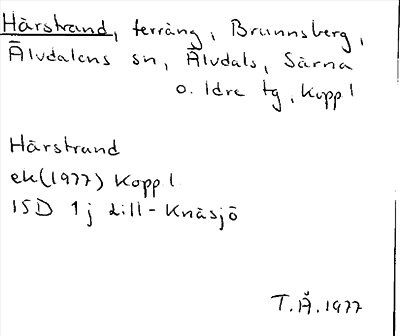 Hårstrand, terräng, Brunnsberg,
Älvdalens sn, Älvdals, Särna
o. Idre tg, Koppl
Hårstrand
ek(1977) Koppl
15D 1j Lill-Knäsjö
T.Å.1977